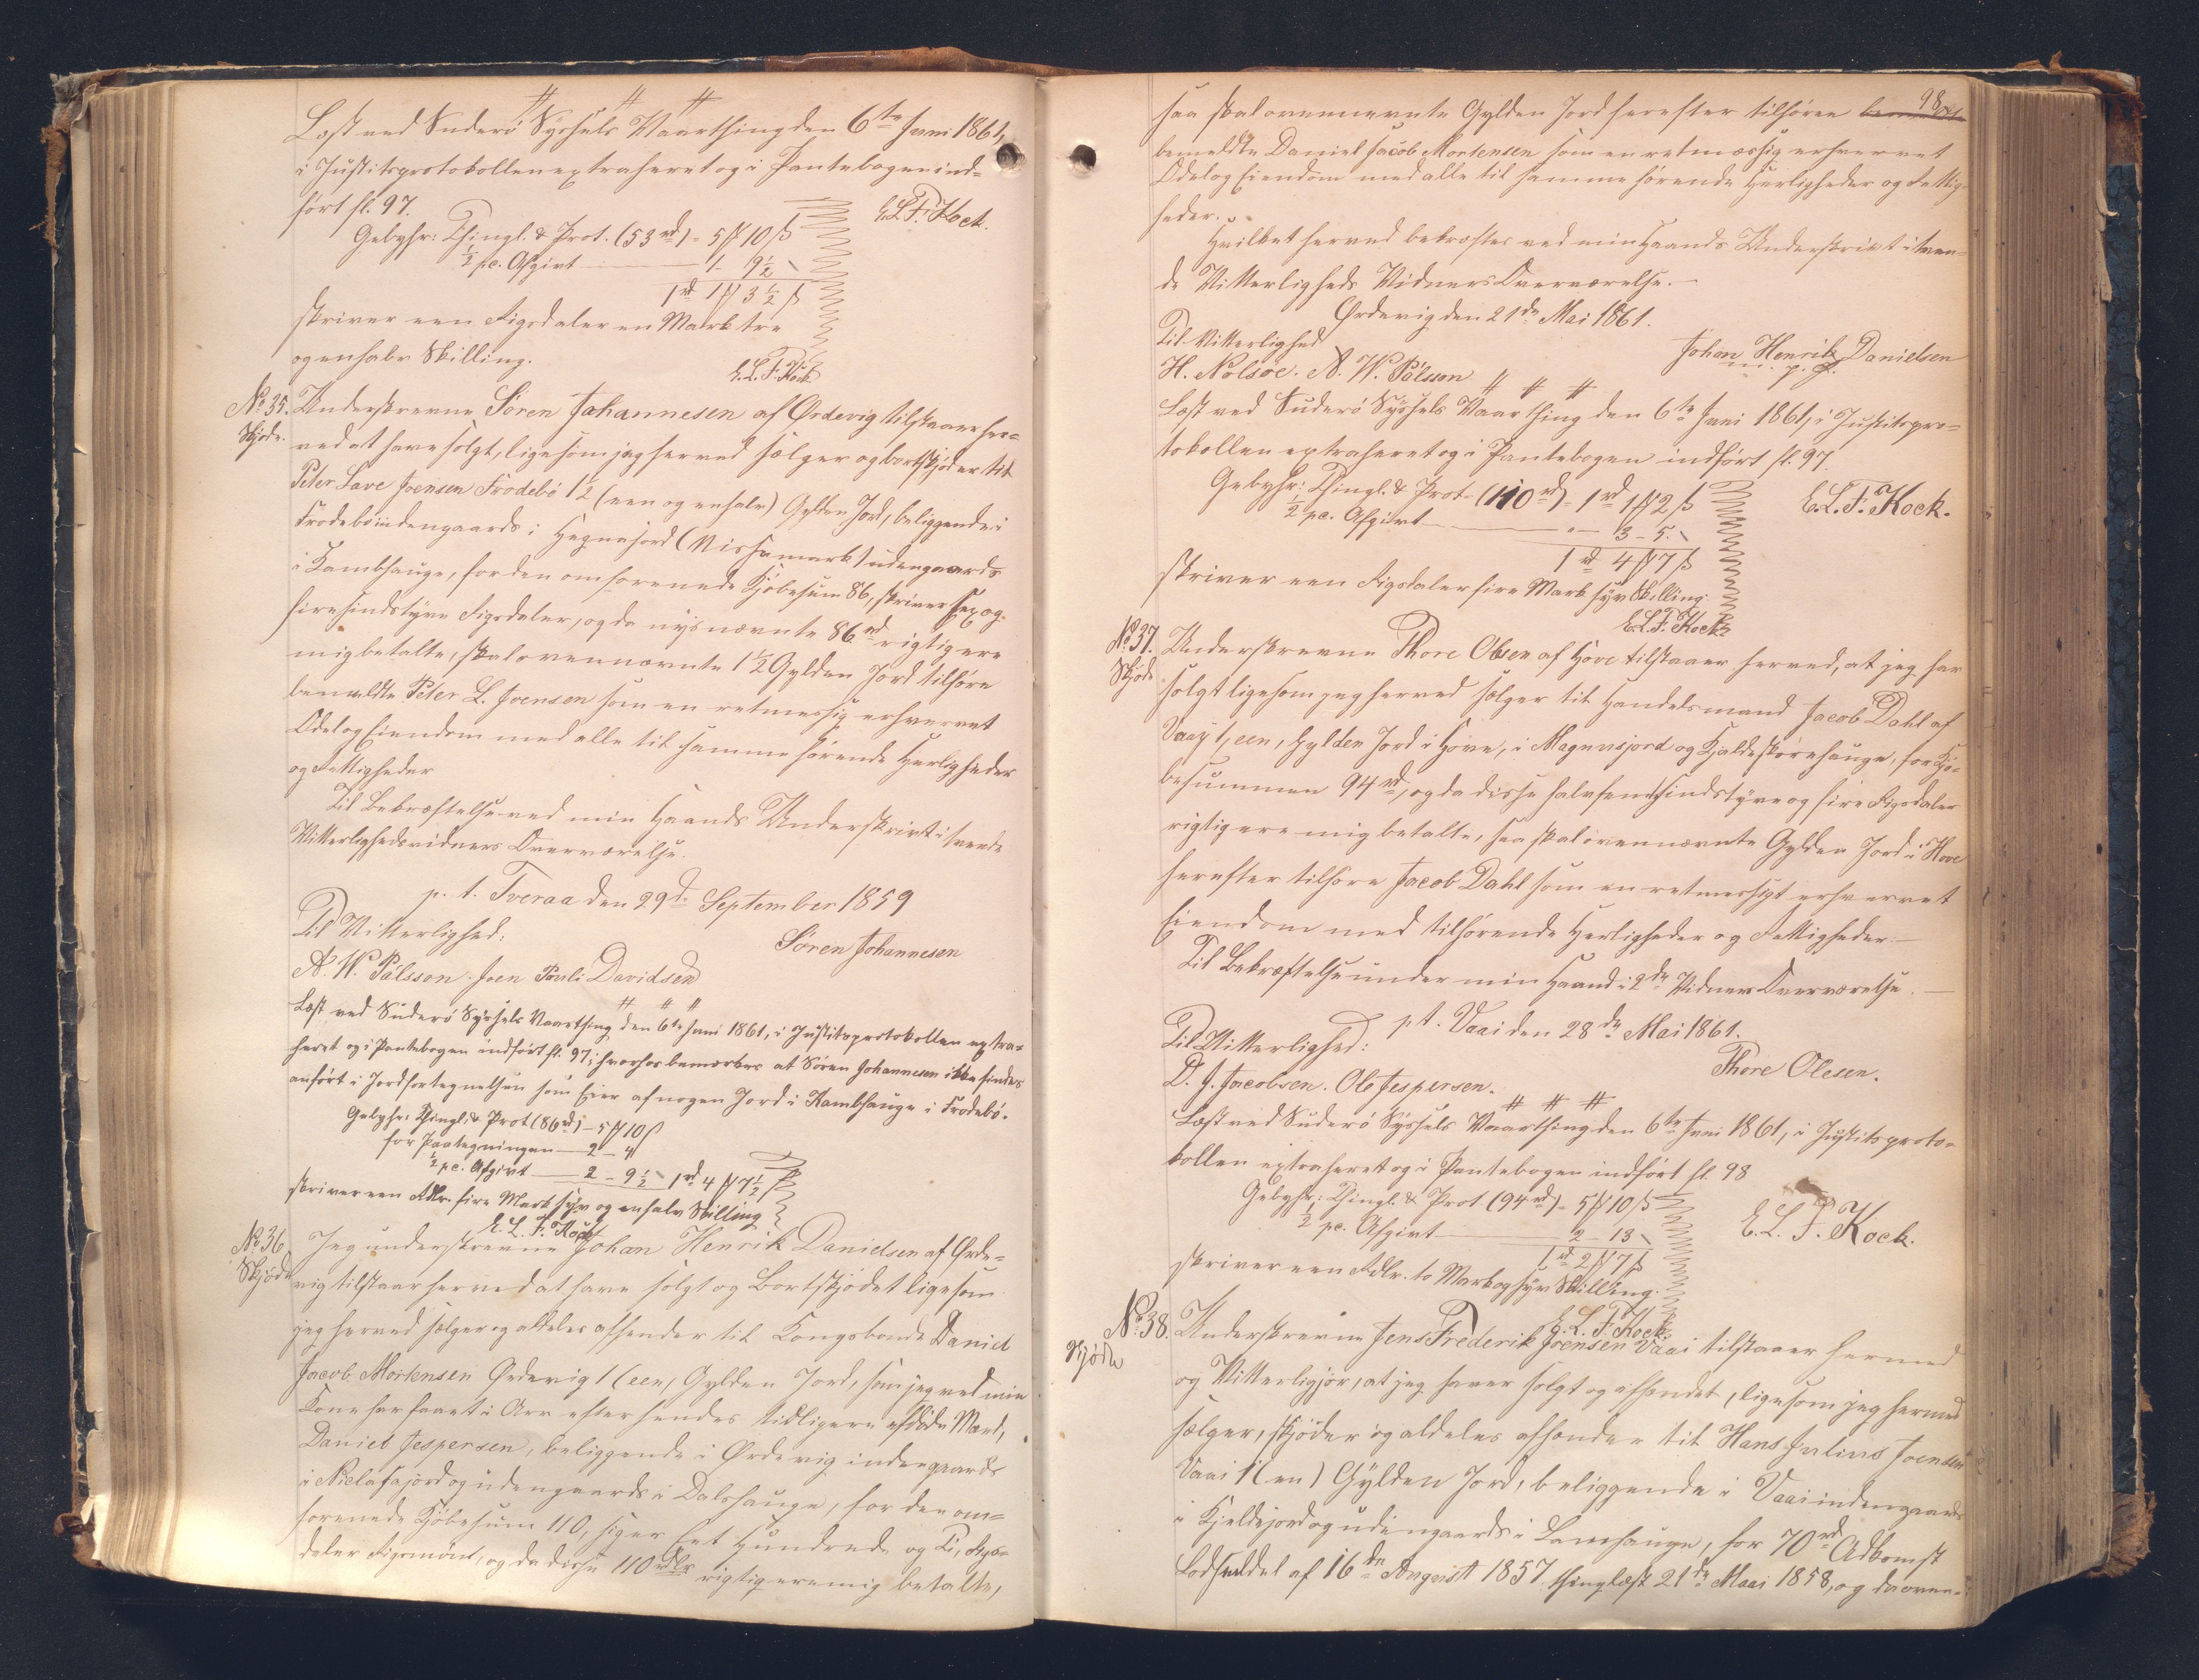 # # #
Læst ved Suderö Syssels Vaarthing den 6te Juni 1861,
i Justitsprotokollen extraheret og i Pantebogen ind-
fört fl. 97.
E.L.F. Kock.
Gebyhr: Thingl. & Prot. (53 rd) - 5 ₶ 10 ß
½ pc. Afgivt — 1 - 9½
1 rd 1 ₶ 3½ ß
skriver een Rigsdaler en Mark tre
og en halv Skilling.
E.L.F. Kock
No 35. Underskrevne Sören Johannesen af Ördevig tilstaaer her-
Skjøde. ved at have solgt, ligesom jeg herved sælger og bortskjöder til
Peter Lave Joensen Frodebö 1½ (een og en halv) Gylden Jord, beliggende i
Frodebö indengaards i Hegnajord (Nissamark) udengaards
i Kambhauge, for den omforenede Kjöbesum 86, skriver sex og
firesindstyve Rigsdaler, og da nysnævnte 86 rd rigtig ere
mig betalte, skal ovennævnte 1½ Gylden Jord tilhöre
bemeldte Peter L. Joensen som en retmessig erhvervet
Odel og Eiendom med alle til samme hörende Herligheder
og Rettigheder
Til Bekræftelse ved min Haands Underskrivt i tvende
Vitterlighedsvidners Overværelse.
p. t. Tveraa den 29de September 1859
Til Vitterlighed:
Sören Johannesen
A. W. Pálsson. Joen Pauli Davidsen
# # #
Læst ved Suderö Syssels Vaarthing den 6te Juni 1861, i Justitsprotokollen extra-
heret og i Pantebogen indfört fl. 97; hvorhos bemærkes at Sören Johannesen ikke findes
anfört i Jordfortegnelsen som Eier af nogen Jord i Kambhauge i Frodebö.
Gebyhr: Thingl. & Prot (86 rd) - 5 ₶ 10 ß
for Paategningen — 2 - 4
½ pc. Afgivt — 2 - 9½ 1 rd 4 ₶ 7½ ß
skriver een Rdlr. fire Mark syv og en halv Skilling
E. L. F. Kock
No 36 Jeg underskrevne Johan Henrik Danielsen af Örde-
Skjøde vig tilstaar herved at have solgt og Bortskjödet ligesom
jeg herved sælger og aldeles afhender til Kongsbonde Daniel
Jacob Mortensen Ördevig 1 (een, Gylden Jord, som jeg ved min
Kone har faaet i Arv efter hendes tidligere afdöde Mand,
Daniel Jespersen, beliggende i Ördevig indengaards
i Nielasajord og udengaards i Dalshauge, for den om-
forenede Kjöbesum 110, siger Eet Hundrede og Ti, Rigs-
daler Rigsmönt, og da disse 110 rdlr rigtig ere mig betalte,
98
saa skal ovennævnte Gylden Jord herefter tilhöre
bemeldte Daniel Jacob Mortensen som en retmæssig erhvervet
Odel og Eiendom med alle til samme hörende Herligheder og Rettig-
heder.
Hvilket herved bekræftes ved min Haands Underskrivt i tven-
de Vitterligheds Vidners Overværelse. —
Ördevig den 21de Mai 1861.
Til Vitterlighed
Johan Henrik Danielsen
H. Nolsöe. A. W. Pálsson
m. p. P.
# # #
Læst ved Suderö Syssels Vaarthing den 6te Juni 1861, i Justitspro-
tokollen extraheret og i Pantebogen indfört fl. 97.
Gebyhr: Thingl. & Prot. (110 rd) - 1 rd 1 ₶ 2 ß
E.L.F. Kock.
½ pc. Afgivt — " - 3 - 5.
1 rd 4 ₶ 7 ß
skriver een Rigsdaler fire Mark syv Skilling.
E.L.F. Kock
No 37. Underskrevne Thore Olesen af Hove tilstaaer herved, at jeg har
Skjøde solgt ligesom jeg herved sælger til Handelsmand Jacob Dahl af
Vaay 1, een, Gylden Jord i Hove, i Magnusjord og Kjaldeskorehauge, for Kjö-
besummen 94 rd, og da disse halvfemsindstyve og fire Rigsdaler
rigtig ere mig betalte, saa skal ovennævnte Gylden Jord i Hove
herefter tilhöre Jacob Dahl som en retmessigt erhvervet
Eiendom med tilhörende Herligheder og Rettigheder. —
Til Bekræftelse under min Haand i 2de Vidners Overværelse. —
pt. Vaai den 28de Mai 1861.
Til Vitterlighed:
Thore Olesen.
D. J. Jacobsen. Ole Jespersen.
# # #
Læst ved Suderö Syssels Vaarthing den 6te Juni 1861, i Justitsproto-
kollen extraheret og i Pantebogen indfört fl. 98
Gebyhr: Thingl. & Prot (94 rd) - 5 ₶ 10 ß
E. L. F. Kock.
½ pc. Afgivt — 2 - 13
1 rd 2 ₶ 7 ß
skriver een Rdlr. to Mark og syv Skilling.
E. L. F. Kock.
No 38. Underskrevne Jens Frederik Joensen Vaai tilstaaer hermed
Skjøde og Vitterligjör, at jeg haver solgt og afhændet, ligesom jeg hermed
sælger, skjöder og aldeles afhænder til Hans Julius Joensen
Vaai 1 (en) Gylden Jord, beliggende i Vaai indengaards
i Kjeldejord og udengaards i Lamhauge, for 70 rd Adkomst
Lodseddel af 16de August 1857 thinglæst 21de Maai 1858, og da oven-